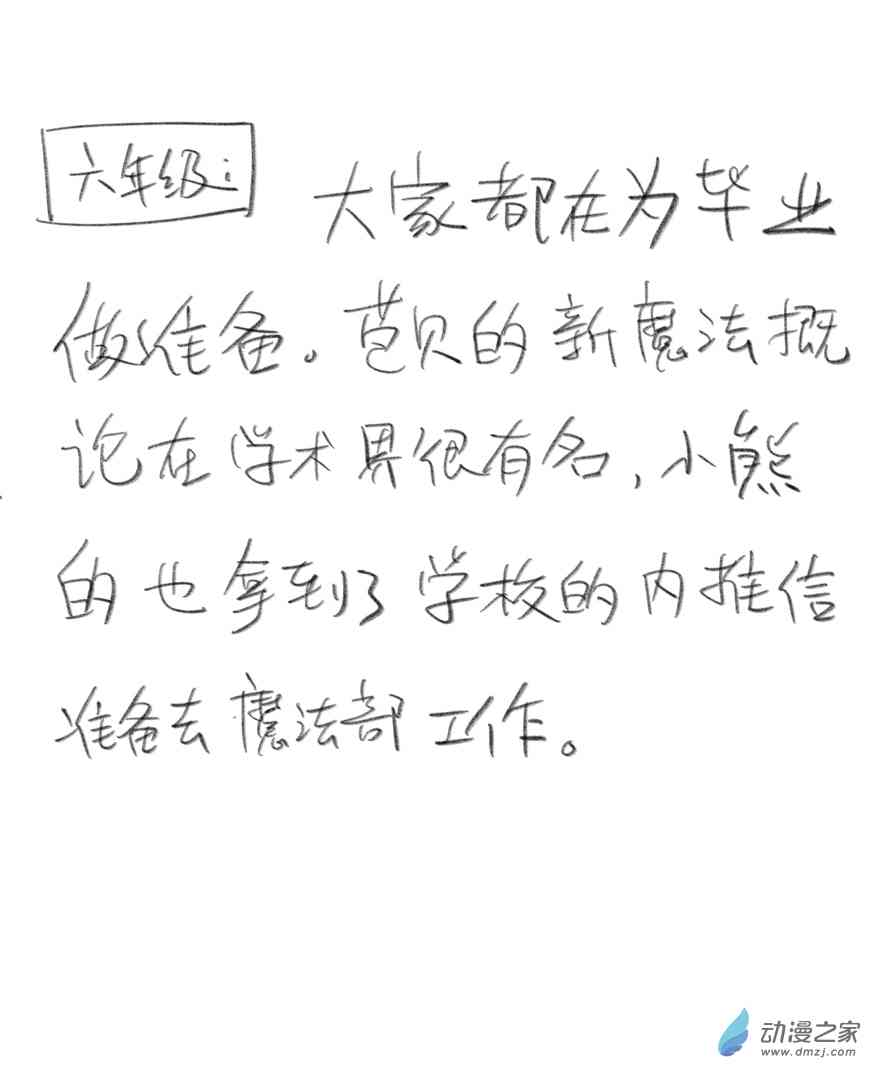 六年级: 大家都在为毕业
做准备。芭贝的新魔法概
论在学术界很有名,小熊
的也拿到了学校的内推信
准备去魔法部工作。
动漫之家
www.dmzj.com